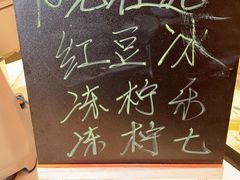 红豆冰
冻柠乐
冻柠七